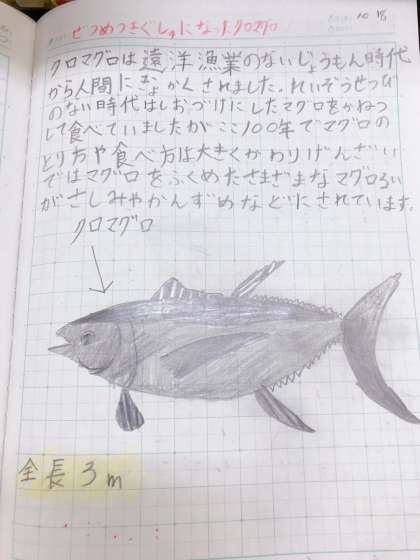 ぜつめつきぐしゅになったクロマグロ
クロマグロは遠洋漁業のないじょうもん時代
から人間にほかくされました。れいぞうせつび
のない時代はしおづけにしたマグロをかねつ
して食べていましたがここ100年でマグロの
とり方や食べ方は大きくかわりげんざい
ではマグロをふくめたさまざまなマグロるい
がさしみやかんずめなどにされています。
クロマグロ
全長3m